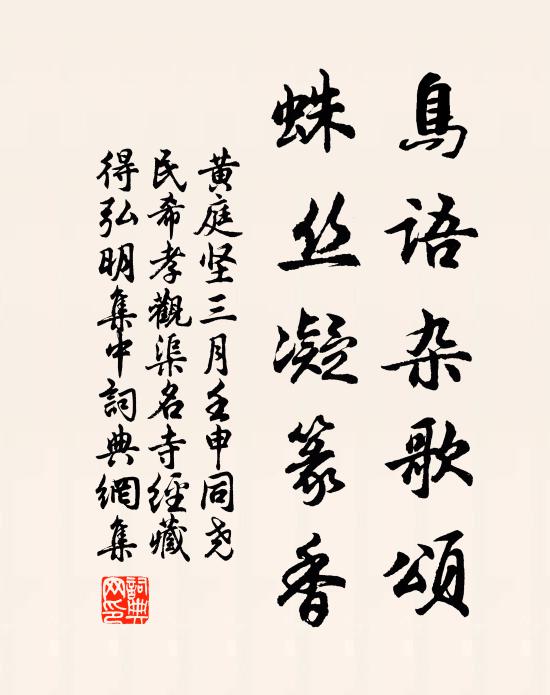 鳥語杂歌頌
蛛丝凝篆香
黄庭坚三月壬申同尧
民希孝觀渠名寺經藏
得弘明集中詞典網集
詞典網印